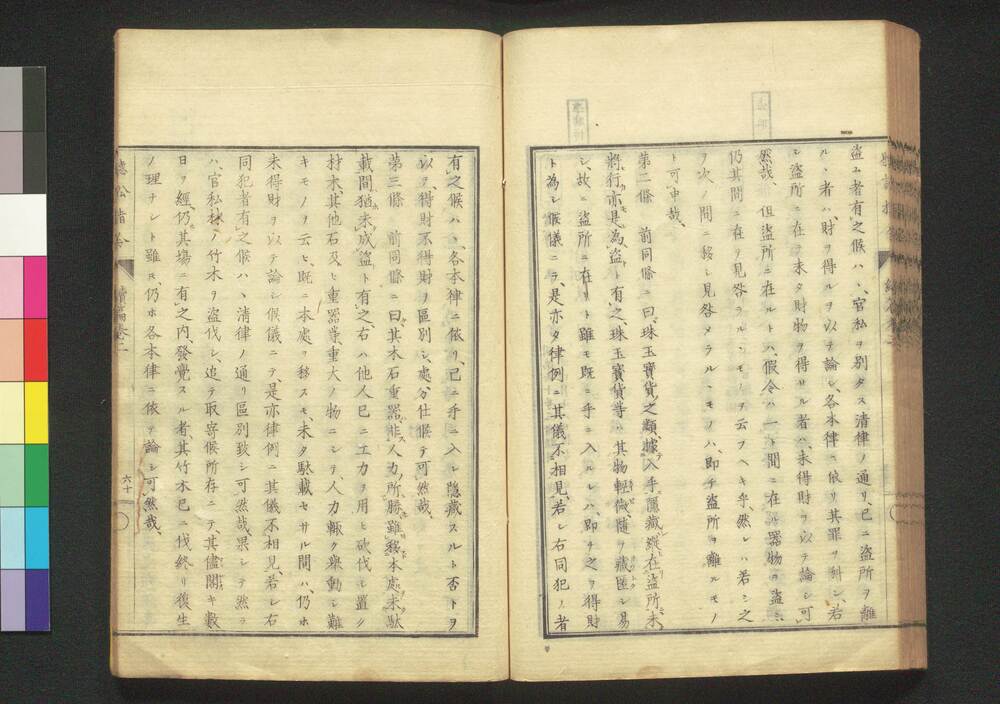 盗ム者有之候ハヽ、官私ヲ別タス清律ノ通リ、已ニ盗所ヲ離
ルヽ者ハ、財ヲ得ルヲ以テ論シ、各本律ニ依リ其罪ヲ糾シ、若
シ盗所ニ在テ未タ財物ヲ得サル者ハ、未得財ヲ以テ論シ可
然哉、但盗所ニ在ルトハ、假令ハ一ト間ニ在ル器物ヲ盗ミ、
仍其間ニ在ヲ見咎ラルヽモノヲ云ヲヘキ乎、然レハ若シ之
ヲ次ノ間ニ移シ見咎メラルヽモノハ、即チ盗所ヲ離ルモノ
ト可申哉、
第二條　前同條ニ曰、珠玉寶貨之類、據入手隱藏、縱在盗所、未
將行、亦是為盗ト有之、珠玉寶貨等ハ其物輕微随ヲ藏匿シ易
シ、故ニ盗所ニ在リト雖モ既ニ手ニ入ルレハ、即チ之ヲ得財
ト為シ候儀ニテ、是亦タ律例ニ其儀不相見、若シ右同犯ノ者
有之候ハヽ、各本律ニ依リ、已ニ手ニ入レ隱藏スルト否トヲ
以テ、得財不得財ヲ區別シ、處分仕候テ可然哉、
第三條　前同條ニ曰、其木石重器、非人力所勝、雖移本處、未馱
載間、猶未成盗ト有之、右ハ他人已ニ工力ヲ用ヒ砍伐シ置シ
材木、其他石及ヒ重器等、重大ノ物ニシテ、人力輙ク擧動シ難
キモノヲ云ヒ、既ニ本處ヲ移スモ、未タ馱載セサル間ハ、仍ホ
未得財ヲ以テ論シ候儀ニテ、是亦律例ニ其儀不相見、若シ右
同犯者有之候ハヽ清律ノ通リ區別致シ可然哉、果シテ然ラ
ハ、官私林ノ竹木ヲ盗伐シ、追テ取寄候所存ニテ、其儘閣キ數
日ヲ經、仍其場ニ有之内、發覺スル者、其竹木已ニ伐終リ復生
ノ理ナシト雖モ、仍ホ各本律ニ依テ論シ可然哉、
聽訟指令
續篇卷二
六十